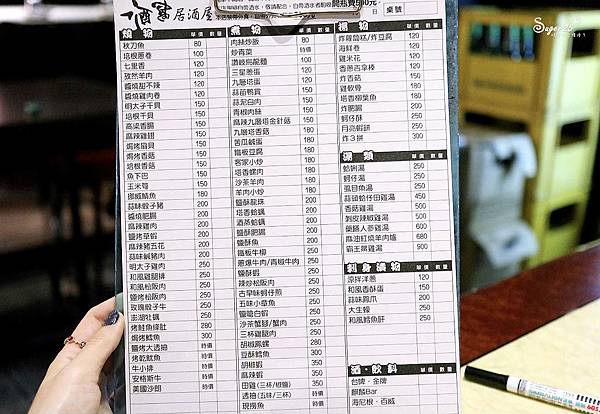 居酒屋
開瓶費150元
日
桌號
Super25
燒物 單價 數量
秋刀魚 80
培根蔥卷 100
七里香 120
孜然羊肉 120
醬燒甜不辣 120
醬燒雞肉卷 120
明太子干貝 150
培根干貝 150
高粱香腸 150
麻辣雞翅 150
焗烤扇貝 180
焗烤香菇 150
培根香菇 150
魚下巴 150
玉米筍 150
挪威鯖魚 180
蒜味骰子豬 200
醬燒肥腸 200
麻辣雞肉 200
鹽烤草蝦 200
麻辣豬五花 200
蒜味鹹豬肉 200
明太子雞肉 250
和風雞腿排 250
和風松阪肉 250
鹽烤松阪肉 250
玫瑰骰子牛 250
澎湖牡蠣 250
烤鮭魚條肚 280
焗烤鱈魚 300
鹽烤大透抽 時價
烤乾魷魚 時價
牛小排 時價
安格斯牛 時價
美國沙朗 時價
煮物 單價 數量
肉絲炒飯 80
炒青菜 時價
讚岐烏龍麵 100
三星蔥蛋 100
九層塔蛋 100
蒜苗鴨賞 150
蒜泥白肉 150
青椒肉絲 150
麻辣九層塔金針菇 150
九層塔香菇 180
苦瓜鹹蛋 180
鐵板豆腐 180
客家小炒 180
塔香螺肉 180
沙茶羊肉 180
羊肉小炒 180
鹽酥龍珠 200
塔香蛤蠣 200
酒蒸蛤蠣 200
鹽酥肥腸 200
鹽酥魚 200
鐵板牛柳 200
蔥爆牛肉/青椒牛肉 200
鹽酥蝦 250
辣炒松阪肉 250
古早味蚵仔煎 250
五味小章魚 250
鹽嗆白蝦 250
沙茶蟹腳/蟹肉 250
三杯雞腿肉 250
胡椒鳳螺 280
豆酥鱈魚 300
胡椒蝦 350
麻辣蝦 350
田雞(三杯/椒鹽) 350
透抽(五味/三杯) 時價
現撈魚 時價
揚物 單價 數量
炸蘿蔔糕/炸豆腐 120
海鮮卷 120
雞米花 120
香蔥百伞棒 120
炸香菇 150
雞軟骨 180
塔香柳葉魚 180
炸肥腸 200
蚵仔酥 200
月亮蝦餅 250
炸3拼 300
湯類 單價 數量
蛤蜊湯 250
蚵仔湯 250
虱目魚湯 250
蒜頭蛤仔田雞湯 450
香菇雞湯 500
剝皮辣椒雞湯 500
藥膳人參雞湯 600
麻油紅燒羊肉爐 680
霸王鱉雞湯 900
刺身漬物 單價 數量
涼拌洋蔥 120
和風香酥蛋 150
蒜味鳳爪 200
大生蠔 250
和風鱈魚肝 250
酒‧飲料 單價 數量
台啤‧金牌
麒麟Bar
海尼根‧百威